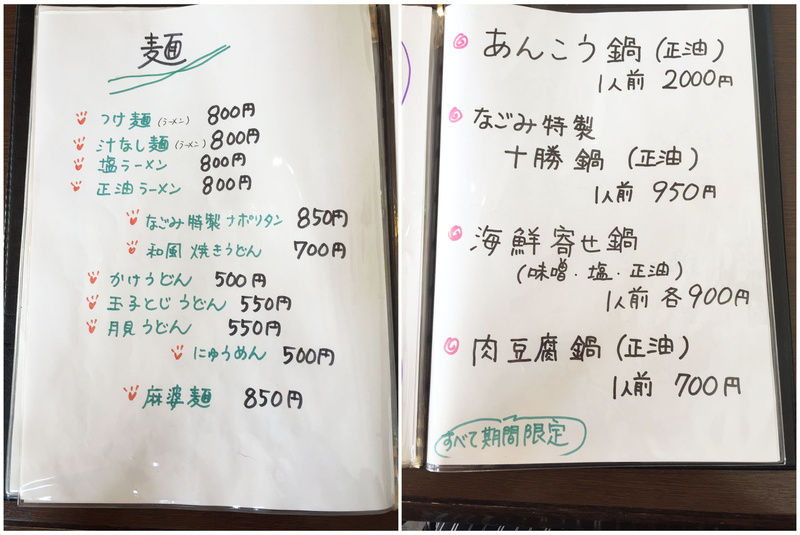 麺
つけ麺(ラーメン) 800円
汁なし麺(ラーメン) 800円
塩ラーメン 800円
正油ラーメン 800円
なごみ特製ナポリタン 850円
和風焼きうどん 700円
かけうどん 500円
玉子とじうどん 550円
月見うどん 550円
にゅうめん 500円
麻婆麺 850円
あんこう鍋(正油)
1人前 2000円
なごみ特製
十勝鍋(正油)
1人前 950円
海鮮寄せ鍋
(味噌・塩・正油)
1人前 各900円
肉豆腐鍋(正油)
1人前 700円
すべて期間限定